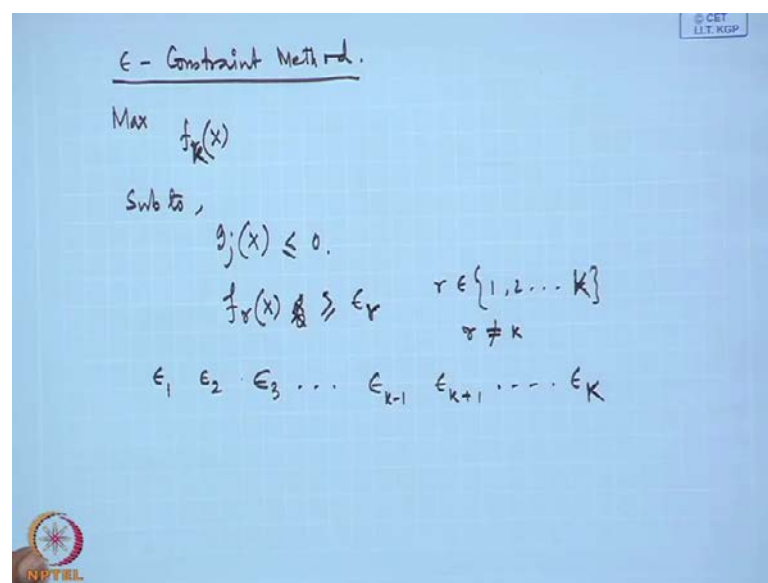 © CET
I.I.T. KGP
ϵ - Constraint Method.
Max f_k(x)
Sub to,
g_j(x) ≤ 0.
f_r(x) ≥ ϵ_r r ∈ {1, 2 ... K}
r ≠ k
ϵ_1 ϵ_2 ϵ_3 ... ϵ_{k-1} ϵ_{k+1} .... ϵ_K
NPTEL